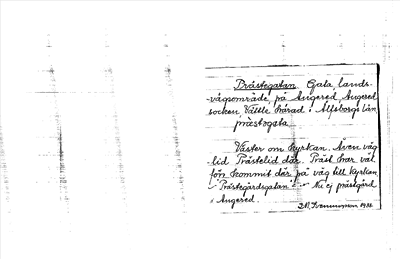 Prästegatan. Gata, lands-
-vägsområde, på Angered, Angered
socken Vättle härad i Älfsborgs län
prästogata
Väster om kyrkan. Även väg
-lid Prästelid där. Präst har väl
förr kommit där på väg till kyrkan
"Prästegårdsgatan" Nu ej prästgård
i Angered.
1926